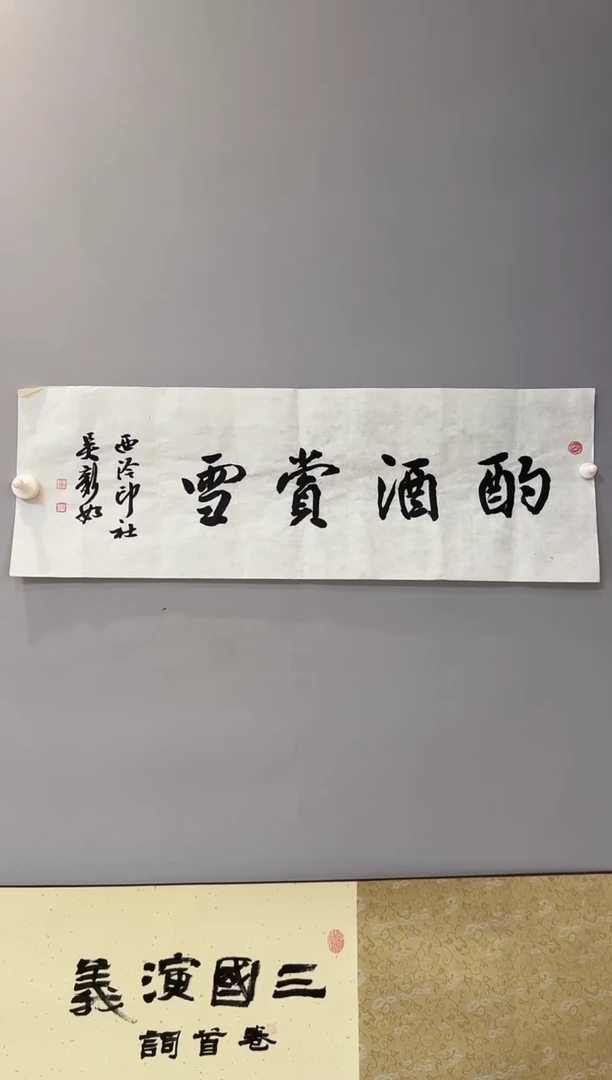 酌酒賞雪
西泠印社
吴新如
三國演義
卷首詞